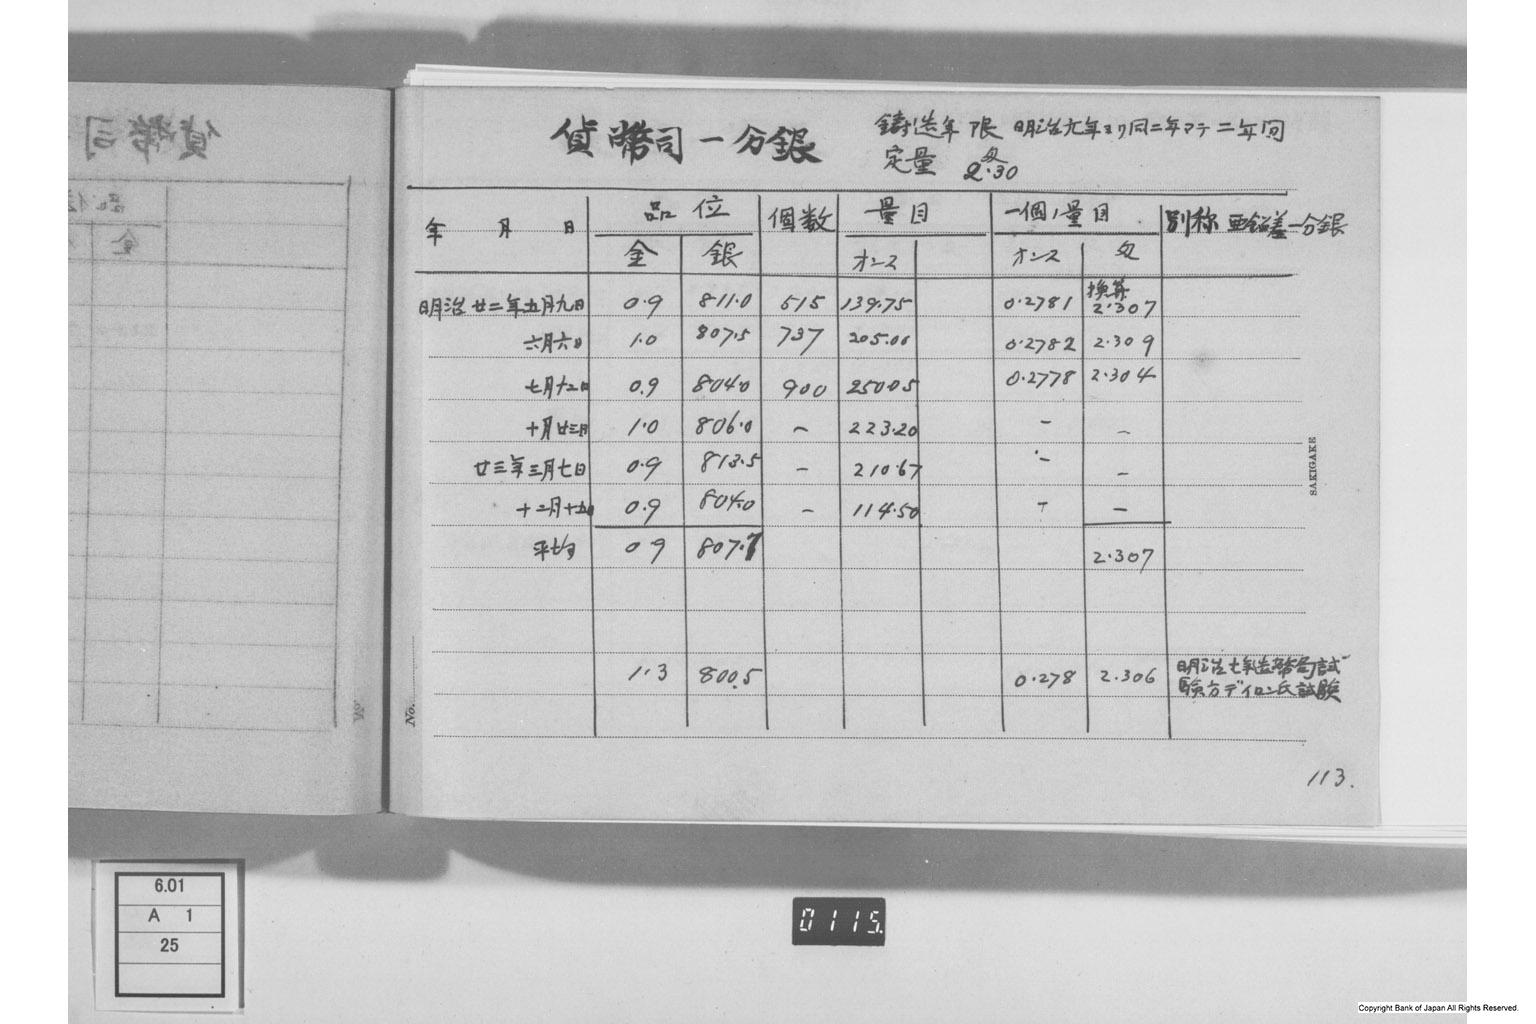 貨幣司一分銀
鋳造年限 明治元年ヨリ同二年マテ二年間
定量 匁2.30
年 月 日 品位 個数 量目 一個ノ量目 別称 亜鉛差一分銀
金 銀 オンス オンス 匁
明治廿二年五月九日 0.9 811.0 515 139.75 0.2781 換算2.307
六月六日 1.0 807.5 737 205.06 0.2782 2.309
七月十二日 0.9 804.0 900 250.05 0.2778 2.304
十月廿三日 1.0 806.0 - 223.20 - -
廿三年三月七日 0.9 813.5 - 210.67 - -
十二月十五日 0.9 804.0 - 114.50 - -
平均 0.9 807.7 2.307
1.3 800.5 0.278 2.306 明治七年造幣局試
験方デイロン氏試験
No.
SAKIGAKE
113.
6.01
A 1
25
0115
Copyright Bank of Japan All Rights Reserved.